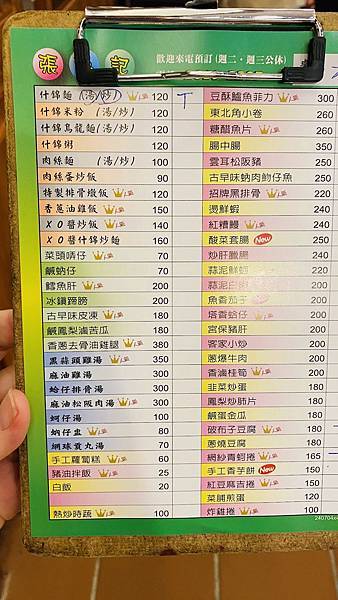 張 記 歡迎來電預訂(週二、週三公休)
什錦麵(湯/炒) 120
什錦米粉(湯/炒) 120
什錦烏龍麵(湯/炒) 120
什錦粥 120
肉絲麵(湯/炒) 100
肉絲蛋炒飯 90
特製排骨燉飯 120
香蔥油雞飯 120
XO醬炒飯 140
XO醬什錦炒麵 160
菜頭嗬仔 70
鹹蚋仔 70
鱈魚肝 200
冰鎮蹄膀 200
古早味皮凍 180
鹹鳳梨滷苦瓜 180
香蔥去骨油雞腿 380
黑蒜頭雞湯 350
麻油雞湯 350
蛤仔排骨湯 350
麻油松阪肉湯 350
蚵仔湯 100
蚋仔湯 80
網球貢丸湯 70
手工蘿蔔糕 60
豬油拌飯 25
白飯 20
熱炒時蔬 100
豆酥鱸魚菲力 300
東北角小卷 260
糖醋魚片 260
腸中腸 350
雲耳松阪豬 250
古早味蚋肉魩仔魚 250
招牌黑排骨 240
燙鮮蝦 240
紅糟鰻 240
酸菜套腸 New 240
炒肝臘腸 240
蒜泥鮮蚵
蒜泥白肉
魚香茄子 200
塔香蛤仔 200
宮保豬肝 200
客家小炒 200
蔥爆牛肉 200
香滷桂筍 200
韭菜炒蛋 180
鳳梨炒肉片 180
鹹蛋金瓜 180
破布子豆腐 180
蔥燒豆腐 180
網紗青蚵捲 165
手工香芋餅 New 150
紅豆麻吉捲 150
菜脯煎蛋 100
炸雞捲 100